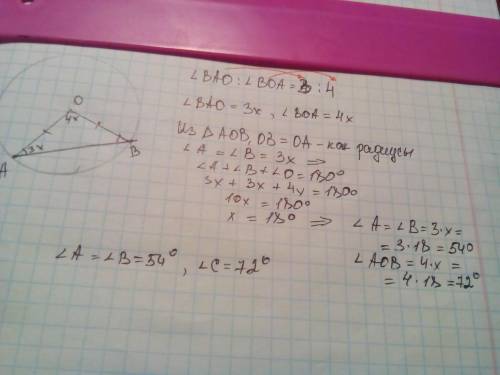 ∠BAO : ∠BOA = 3 : 4
∠BAO = 3x, ∠BOA = 4x
Из △AOB, OB = OA – как радиусы
∠A = ∠B = 3x ⇒
∠A + ∠B + ∠O = 180°
3x + 3x + 4x = 180°
10x = 180°
x = 18° ⇒
∠A = ∠B = 3·x =
= 3·18 = 54°
∠AOB = 4·x =
= 4·18 = 72°
∠A = ∠B = 54°, ∠C = 72°
O
4x
3x
A
B